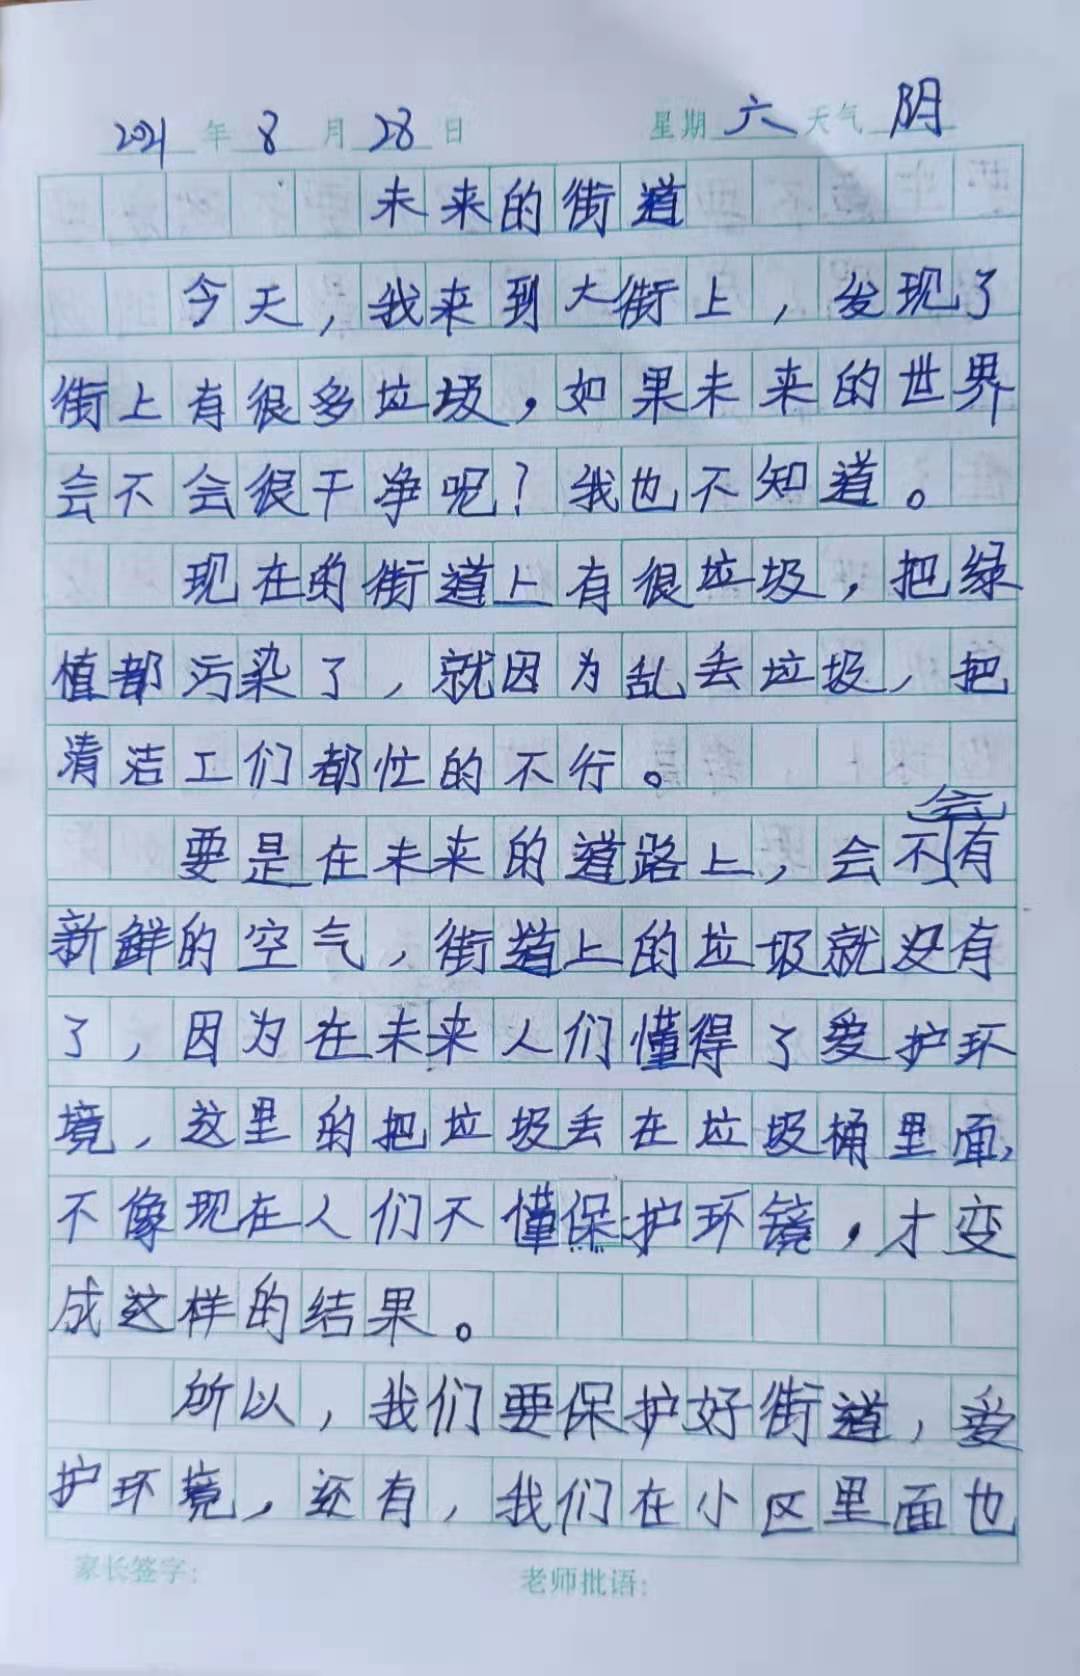 2021年8月28日 星期六 天气阴
未来的街道
今天，我来到大街上，发现了
街上有很多垃圾，如果未来的世界
会不会很干净呢？我也不知道。
现在的街道上有很垃圾，把绿
植都污染了，就因为乱丢垃圾，把
清洁工们都忙的不行。
要是在未来的道路上，会不会有
新鲜的空气，街道上的垃圾就没有
了，因为在未来人们懂得了爱护环
境，这里的把垃圾丢在垃圾桶里面，
不像现在人们不懂保护环镜，才变
成这样的结果。
所以，我们要保护好街道，爱
护环境，还有，我们在小区里面也
家长签字： 老师批语：